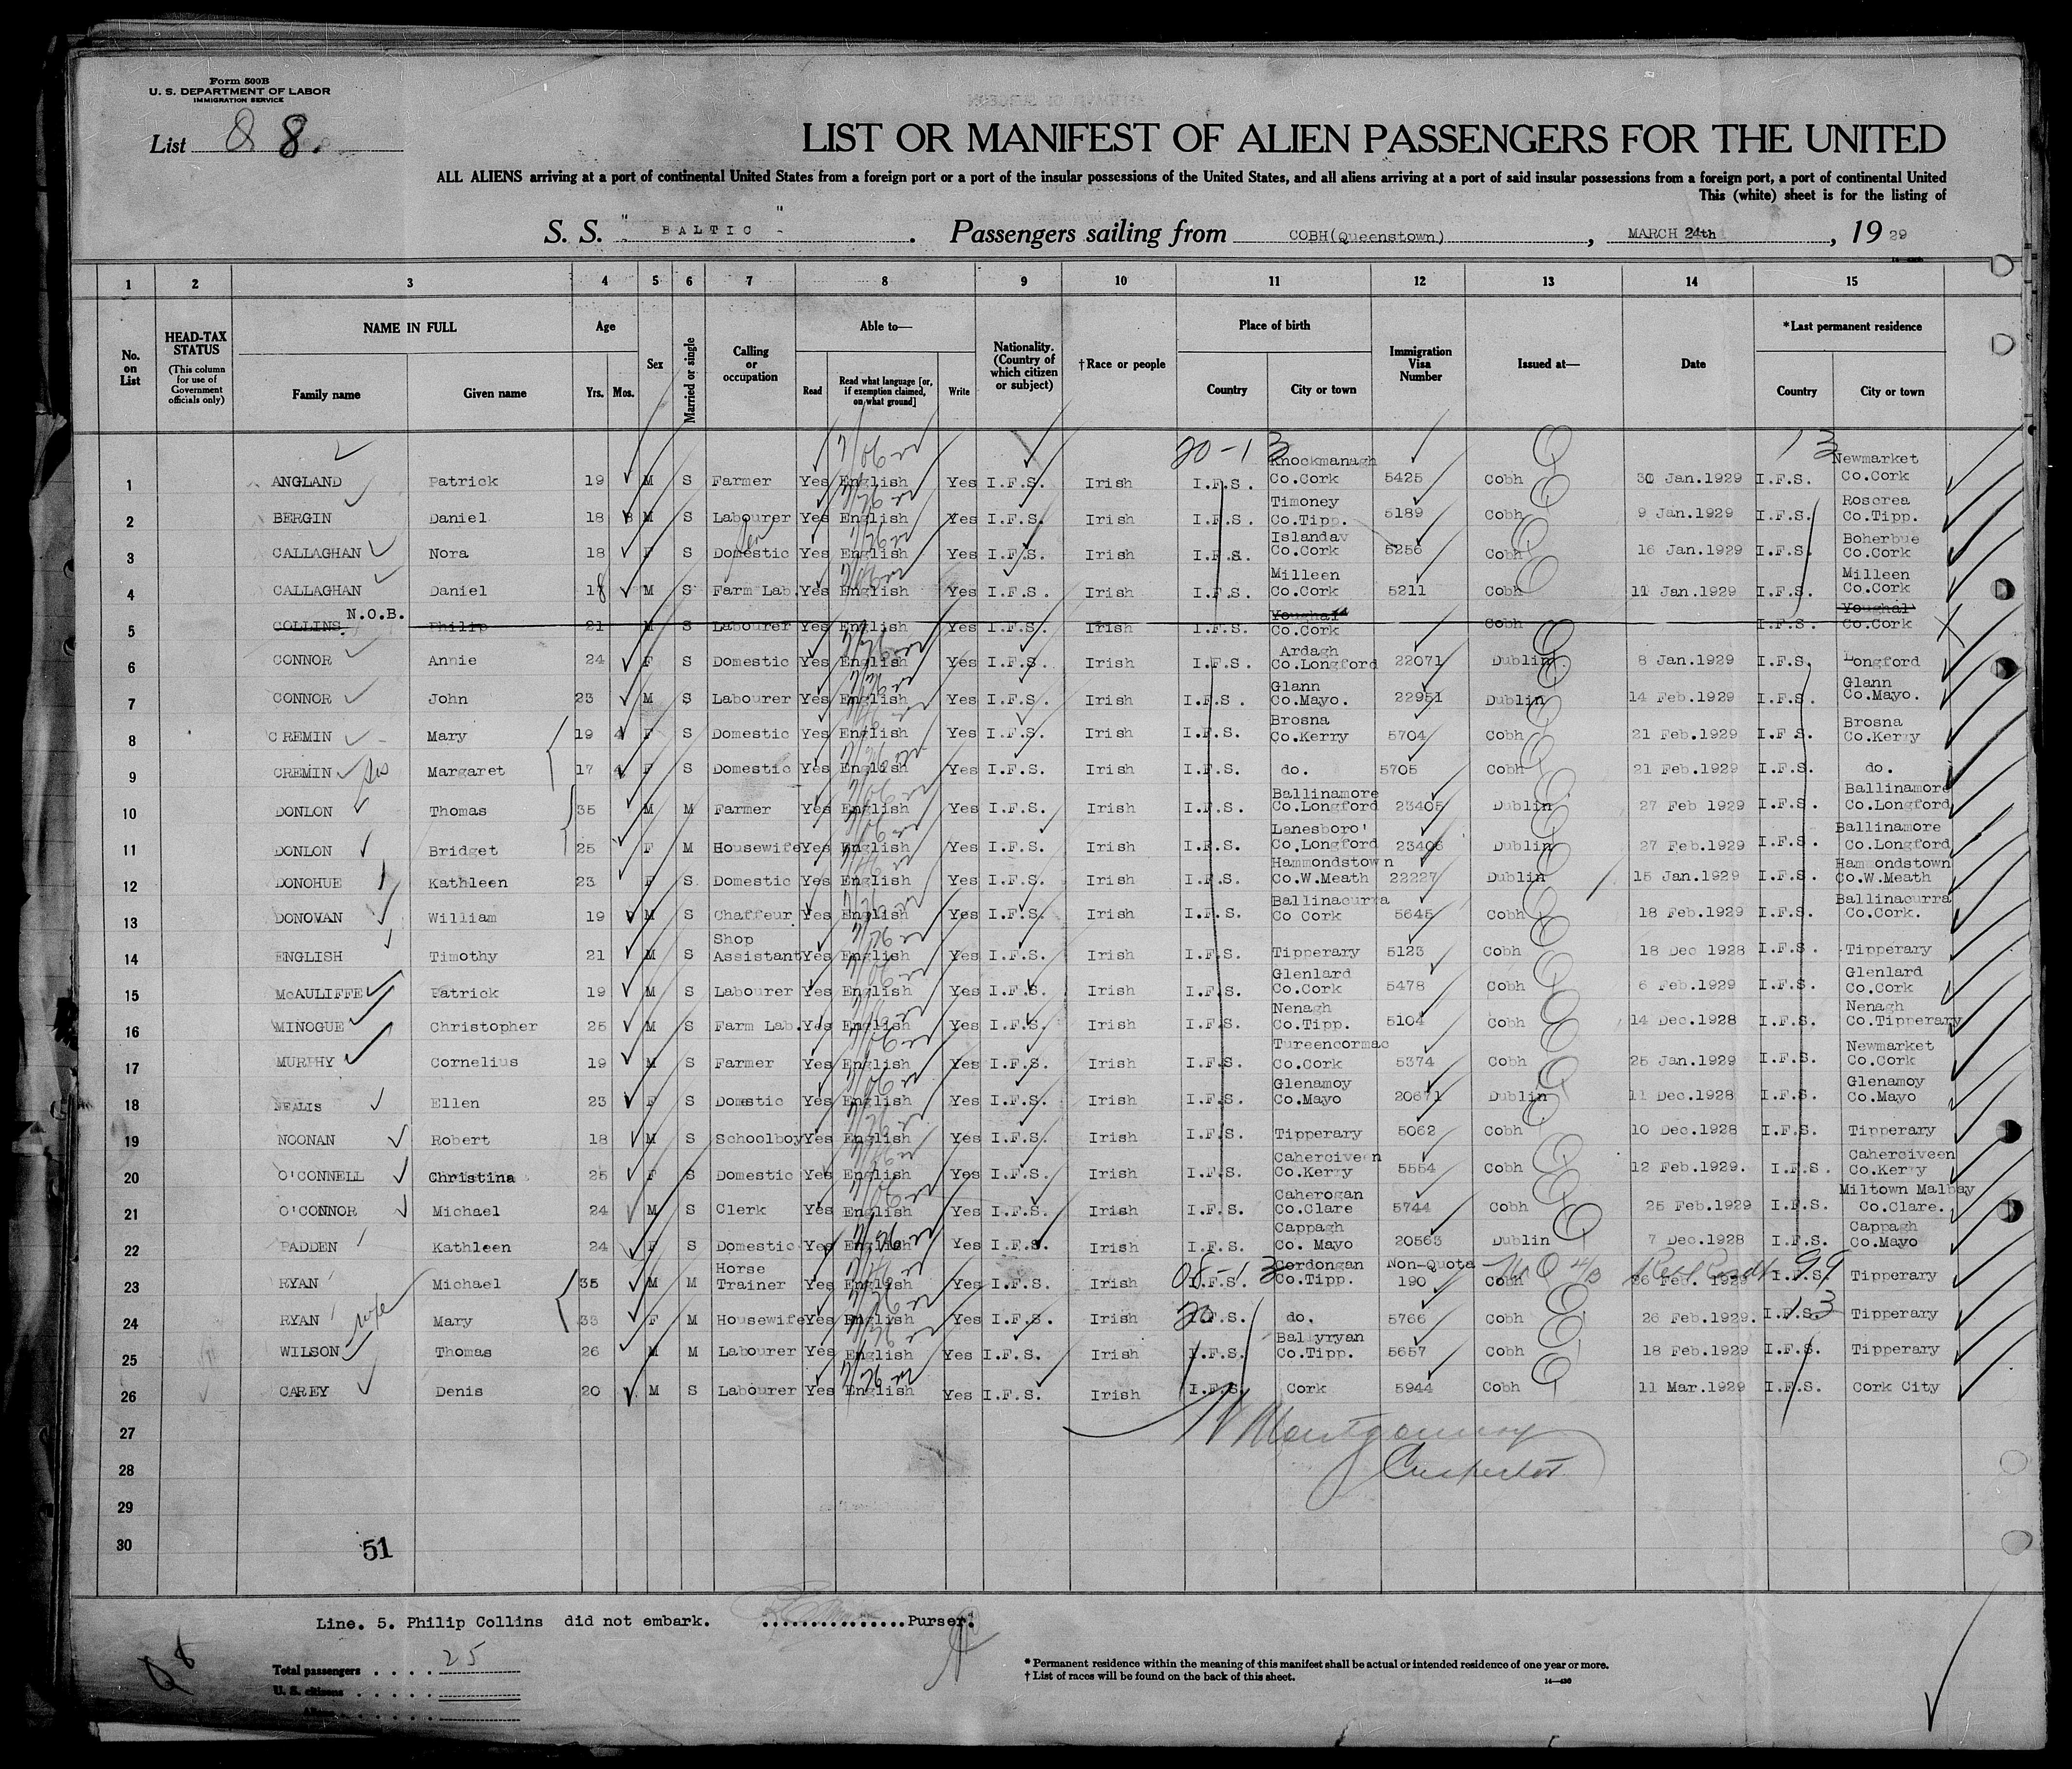 Form 500B
U. S. DEPARTMENT OF LABOR
IMMIGRATION SERVICE
List 8 8.
LIST OR MANIFEST OF ALIEN PASSENGERS FOR THE UNITED
ALL ALIENS arriving at a port of continental United States from a foreign port or a port of the insular possessions of the United States, and all aliens arriving at a port of said insular possessions from a foreign port, a port of continental United
This (white) sheet is for the listing of
S. S. "BALTIC". Passengers sailing from COBH(Queenstown), MARCH 24th, 1929
1 2 3 4 5 6 7 8 9 10 11 12 13 14 15
No. on List
HEAD-TAX STATUS (This column for use of Government officials only)
NAME IN FULL Family name Given name
Age Yrs. Mos.
Sex
Married or single
Calling or occupation
Able to— Read Read what language [or, if exemption claimed, on what ground] Write
Nationality. (Country of which citizen or subject)
†Race or people
Place of birth Country City or town
Immigration Visa Number
Issued at—
Date
*Last permanent residence Country City or town
20-13 13
1 ANGLAND Patrick 19 M S Farmer Yes English Yes I.F.S. Irish I.F.S. Knockmanagh Co.Cork 5425 Cobh 30 Jan.1929 I.F.S. Newmarket Co.Cork
2 BERGIN Daniel 18 8 M S Labourer Yes English Yes I.F.S. Irish I.F.S. Timoney Co.Tipp. 5189 Cobh 9 Jan.1929 I.F.S. Roscrea Co.Tipp.
3 CALLAGHAN Nora 18 F S Domestic Yes English Yes I.F.S. Irish I.F.S. Islandav Co.Cork 5256 Cobh 16 Jan.1929 I.F.S. Boherbue Co.Cork
4 CALLAGHAN Daniel 18 M S Farm Lab. Yes English Yes I.F.S. Irish I.F.S. Milleen Co.Cork 5211 Cobh 11 Jan.1929 I.F.S. Milleen Co.Cork
5 COLLINS N.O.B. Philip 21 M S Labourer Yes English Yes I.F.S. Irish I.F.S. Youghal Co.Cork Cobh I.F.S. Youghal Co.Cork
6 CONNOR Annie 24 F S Domestic Yes English Yes I.F.S. Irish I.F.S. Ardagh Co.Longford 22071 Dublin 8 Jan.1929 I.F.S. Longford
7 CONNOR John 23 M S Labourer Yes English Yes I.F.S. Irish I.F.S. Glann Co.Mayo. 22951 Dublin 14 Feb.1929 I.F.S. Glann Co.Mayo.
8 CREMIN Mary 19 4 F S Domestic Yes English Yes I.F.S. Irish I.F.S. Brosna Co.Kerry 5704 Cobh 21 Feb.1929 I.F.S. Brosna Co.Kerry
9 CREMIN sis Margaret 17 4 F S Domestic Yes English Yes I.F.S. Irish I.F.S. do. 5705 Cobh 21 Feb.1929 I.F.S. do.
10 DONLON Thomas 35 M M Farmer Yes English Yes I.F.S. Irish I.F.S. Ballinamore Co.Longford 23405 Dublin 27 Feb 1929 I.F.S. Ballinamore Co.Longford
11 DONLON Bridget 25 F M Housewife Yes English Yes I.F.S. Irish I.F.S. Lanesboro' Co.Longford 23406 Dublin 27 Feb.1929 I.F.S. Ballinamore Co.Longford
12 DONOHUE Kathleen 23 F S Domestic Yes English Yes I.F.S. Irish I.F.S. Hammondstown Co.W.Meath 22227 Dublin 15 Jan.1929 I.F.S. Hammondstown Co.W.Meath
13 DONOVAN William 19 M S Chaffeur Yes English Yes I.F.S. Irish I.F.S. Ballinacurra Co Cork 5645 Cobh 18 Feb.1929 I.F.S. Ballinacurra Co.Cork.
14 ENGLISH Timothy 21 M S Shop Assistant Yes English Yes I.F.S. Irish I.F.S. Tipperary 5123 Cobh 18 Dec 1928 I.F.S. Tipperary
15 McAULIFFE Patrick 19 M S Labourer Yes English Yes I.F.S. Irish I.F.S. Glenlard Co.Cork 5478 Cobh 6 Feb.1929 I.F.S. Glenlard Co.Cork
16 MINOGUE Christopher 25 M S Farm Lab. Yes English Yes I.F.S. Irish I.F.S. Nenagh Co.Tipp. 5104 Cobh 14 Dec.1928 I.F.S. Nenagh Co.Tipperary
17 MURPHY Cornelius 19 M S Farmer Yes English Yes I.F.S. Irish I.F.S. Tureencormac Co.Cork 5374 Cobh 25 Jan.1929 I.F.S. Newmarket Co.Cork
18 NEALIS Ellen 23 F S Domstic Yes English Yes I.F.S. Irish I.F.S. Glenamoy Co.Mayo 20671 Dublin 11 Dec.1928 I.F.S. Glenamoy Co.Mayo
19 NOONAN Robert 18 M S Schoolboy Yes English Yes I.F.S. Irish I.F.S. Tipperary 5062 Cobh 10 Dec.1928 I.F.S. Tipperary
20 O'CONNELL Christina 25 F S Domestic Yes English Yes I.F.S. Irish I.F.S. Caherciveen Co.Kerry 5554 Cobh 12 Feb.1929. I.F.S. Caherciveen Co.Kerry
21 O'CONNOR Michael 24 M S Clerk Yes English Yes I.F.S. Irish I.F.S. Caherogan Co.Clare 5744 Cobh 25 Feb.1929 I.F.S. Miltown Malbay Co.Clare.
22 PADDEN Kathleen 24 F S Domestic Yes English Yes I.F.S. Irish I.F.S. Cappagh Co. Mayo 20563 Dublin 7 Dec.1928 I.F.S. Cappagh Co.Mayo
23 RYAN Michael 35 M M Horse Trainer Yes English Yes I.F.S. Irish 08-13 I.F.S. Cordongan Co.Tipp. Non-Quota 190 Cobh 26 Feb. 1929 I.F.S. 99 Tipperary
24 RYAN wife Mary 33 F M Housewife Yes English Yes I.F.S. Irish 20 I.F.S. do. 5766 Cobh 26 Feb.1929. I.F.S. 13 Tipperary
25 WILSON Thomas 26 M M Labourer Yes English Yes I.F.S. Irish I.F.S. Ballyryan Co.Tipp. 5657 Cobh 18 Feb.1929 I.F.S. Tipperary
26 CAREY Denis 20 M S Labourer Yes English Yes I.F.S. Irish I.F.S. Cork 5944 Cobh 11 Mar.1929 I.F.S. Cork City
27 Montgomery
28 Inspector
29
30
51
Line. 5. Philip Collins did not embark. ...............Purser.
Total passengers . . . . 25
U. S. citizens . . . . .
Aliens . . . . . .
* Permanent residence within the meaning of this manifest shall be actual or intended residence of one year or more.
† List of races will be found on the back of this sheet.